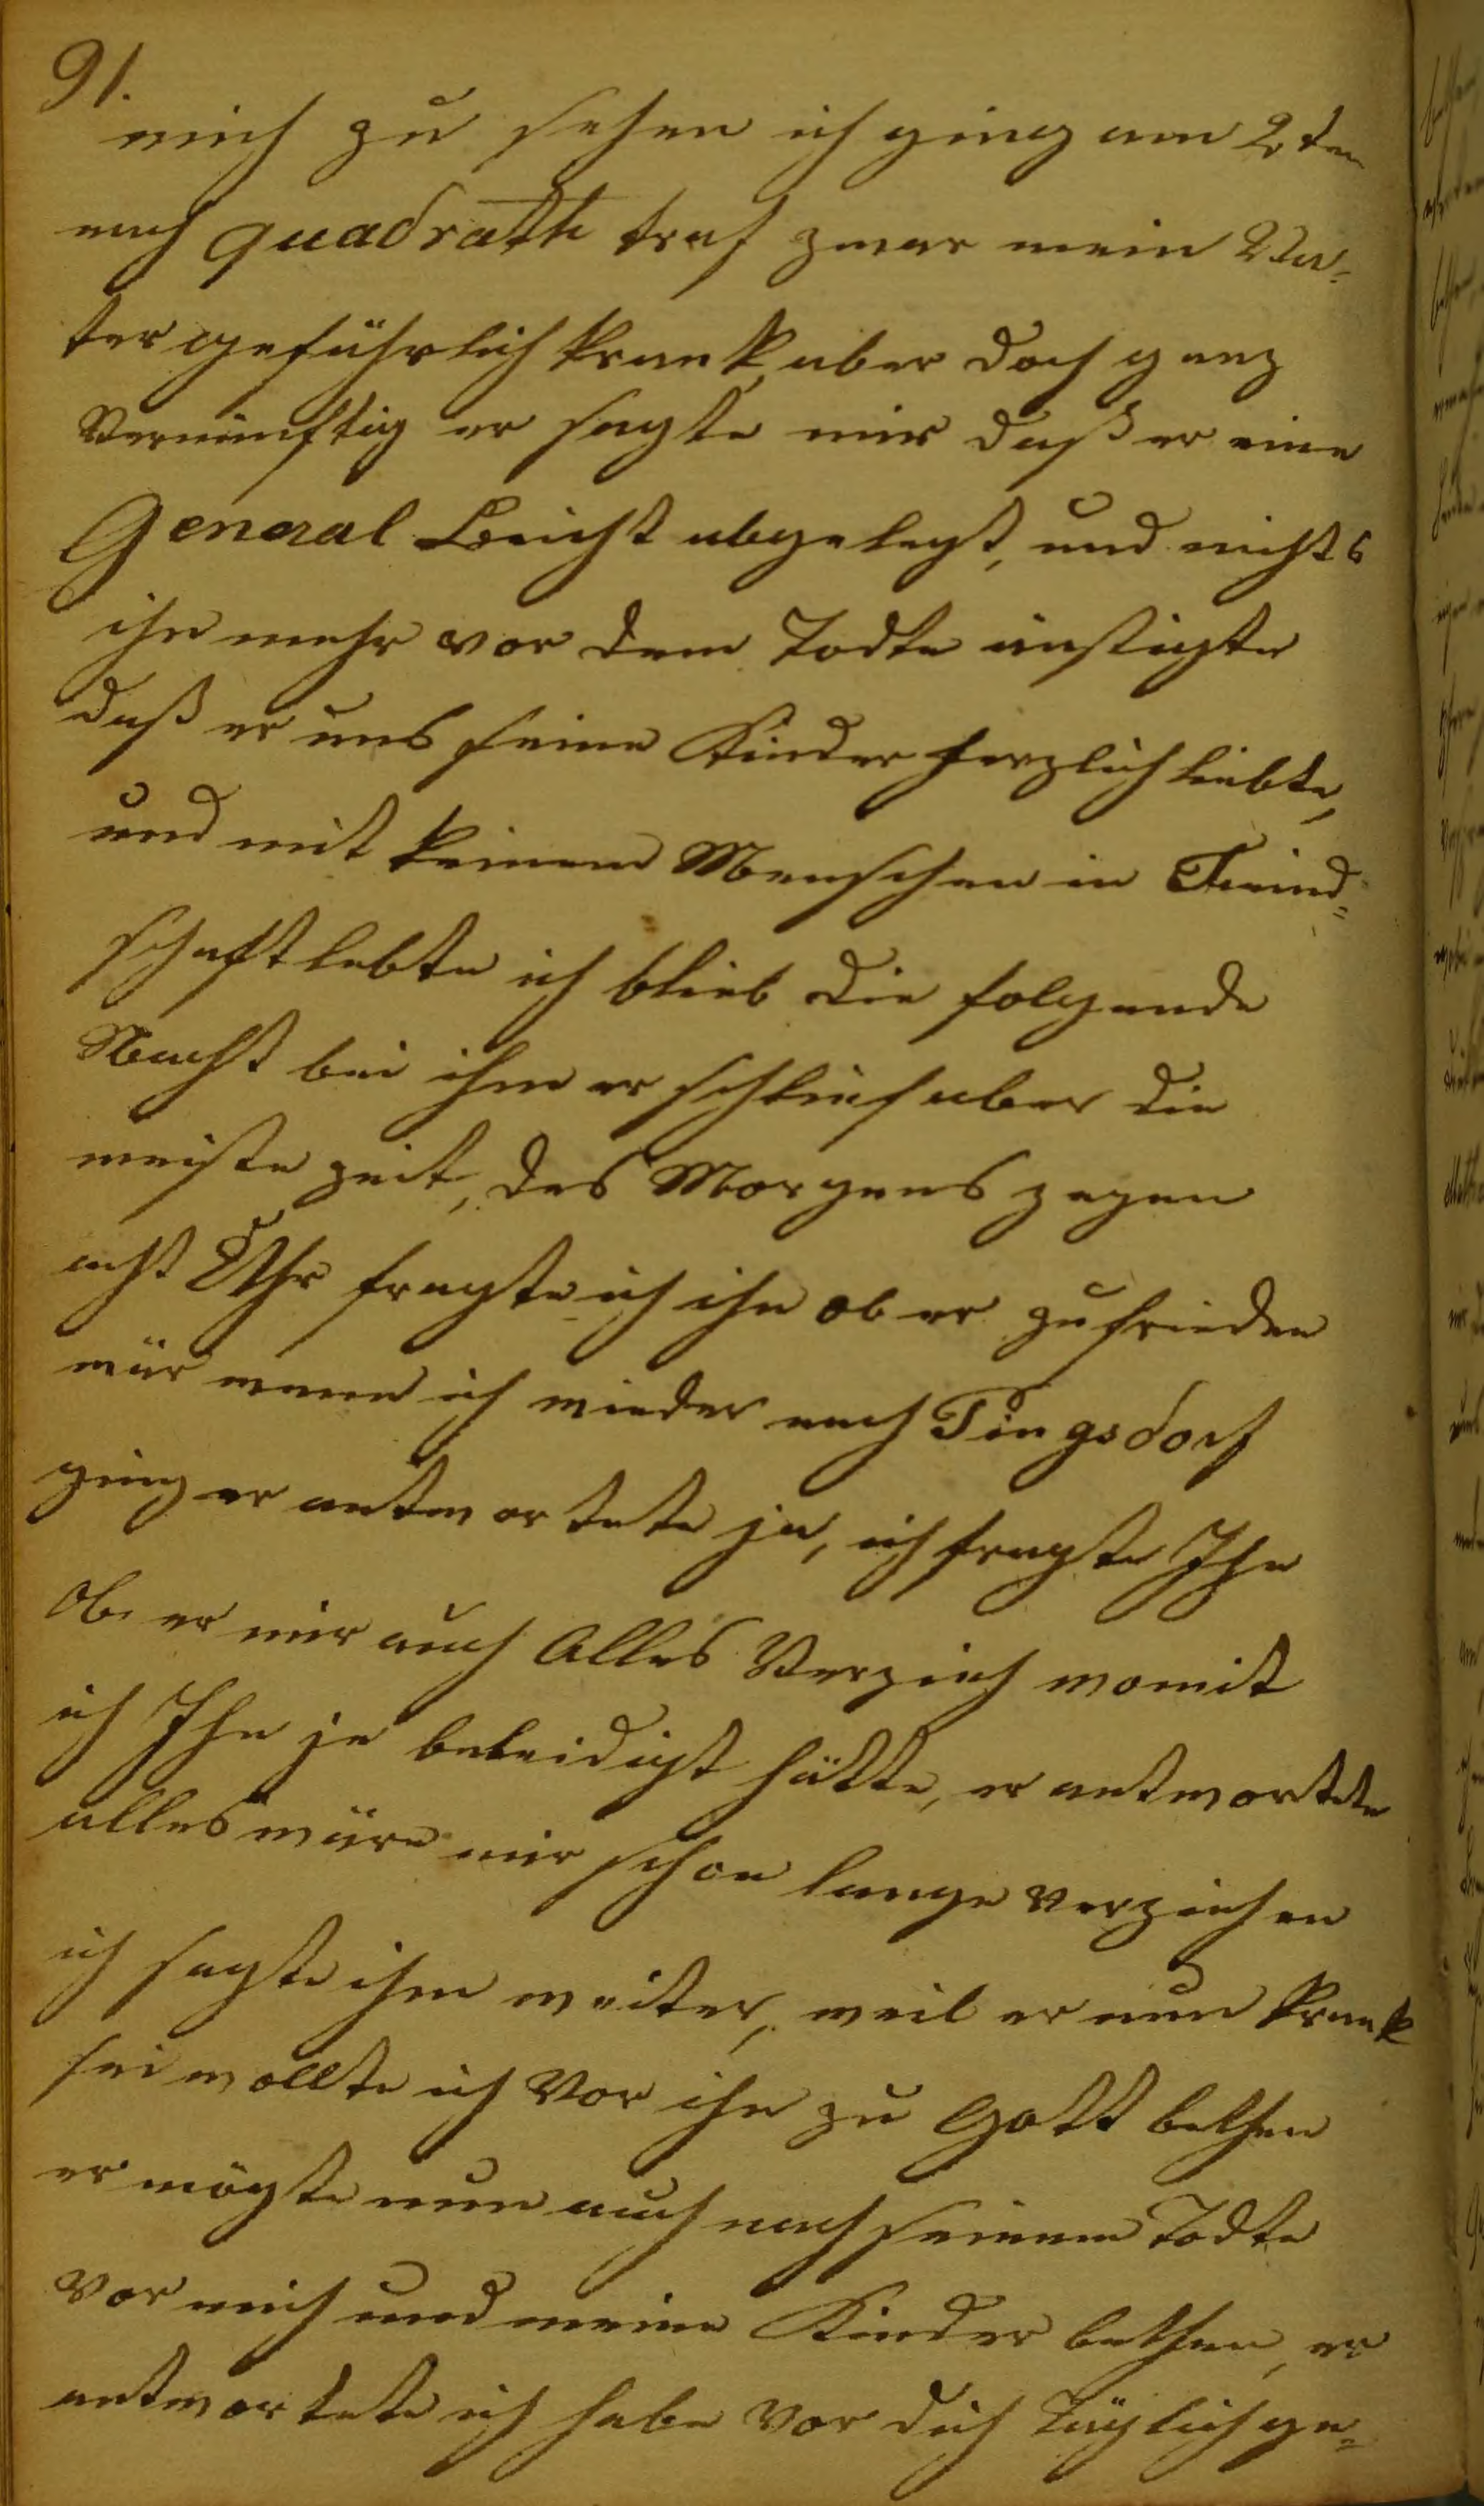 91.
mich zu sehen ich ging am 2ten
nach quadrath traf zwar mein Va=
ter gefährlich krank, aber doch ganz
Vernünftig er sagte mir daß er eine
General Beicht abgelegt, und nichts
ihn mehr vor dem Todte änstigte
daß er uns seine Kinder herzlich liebte,
und mit keinem Menschen in Feind=
schaft lebte ich blieb die folgende
Nacht bei ihm er schlief aber die
meiste zeit, des Morgens gegen
acht Uhr fragte ich ihn ob er zufrieden
wär wenn ich wieder nach Fingsdorf
ging er antwortete ja, ich fragte Ihn
Ob er mir auch Alles Verzieh womit
ich Ihn je beleidigt hätte, er antwortete
alles wäre mir schon lange verziehen
ich sagte ihm weiter, weil er nun krank
sei wollte ich Vor ihn zu Gott bethen
er mögte nun auch nach seinem Todte
Vor mich und meine Kinder bethen, er
antwortete ich habe Vor dich täglich ge=